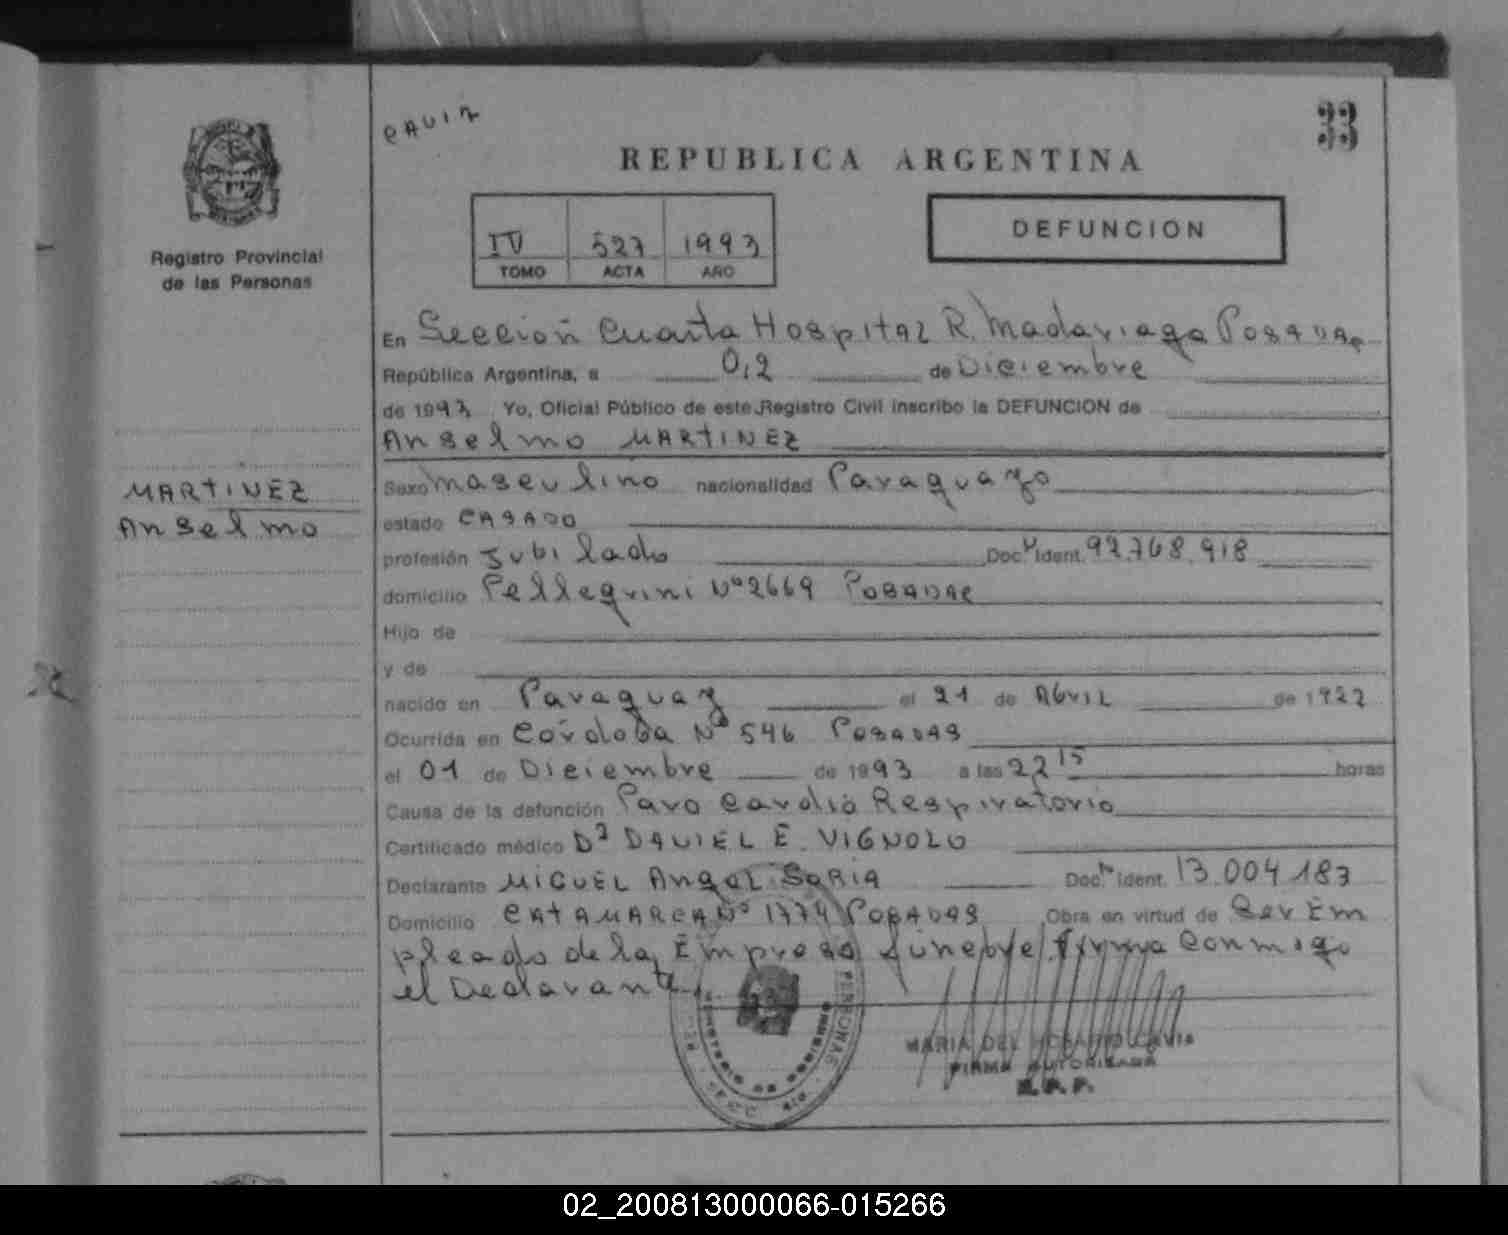 CAVIA
33
REPUBLICA ARGENTINA
IV 527 1993
TOMO ACTA AÑO
DEFUNCION
Registro Provincial
de las Personas
En Sección Cuarta Hospital R. Madariaga POSADAS
República Argentina, a 02 de Diciembre
de 1993 Yo, Oficial Público de este Registro Civil inscribo la DEFUNCION de
Anselmo MARTINEZ
MARTINEZ
Anselmo
Sexo masculino nacionalidad Paraguayo
estado CASADO
profesión Jubilado Doc. Ident. 92.768.918
domicilio Pellegrini Nº 2669 POSADAS
Hijo de
y de
nacido en Paraguay el 21 de Abril de 1922
Ocurrida en Córdoba Nº 546 POSADAS
el 01 de Diciembre de 1993 a las 22 15 horas
Causa de la defunción Paro Cardio Respiratorio
Certificado médico Dr DANIEL E. VIGNOLO
Declarante MIGUEL Angel SORIA Doc. Ident. 13.004.183
Domicilio CATAMARCA Nº 1774 POSADAS Obra en virtud de Ser Em
pleado de la Empresa fúnebre, firma Conmigo
el Declarante
PERSONAS
MINISTERIO DE GOBIERNO
MARIA DEL ROSARIO CAVIA
FIRMA AUTORIZADA
R.P.P.
02_200813000066-015266